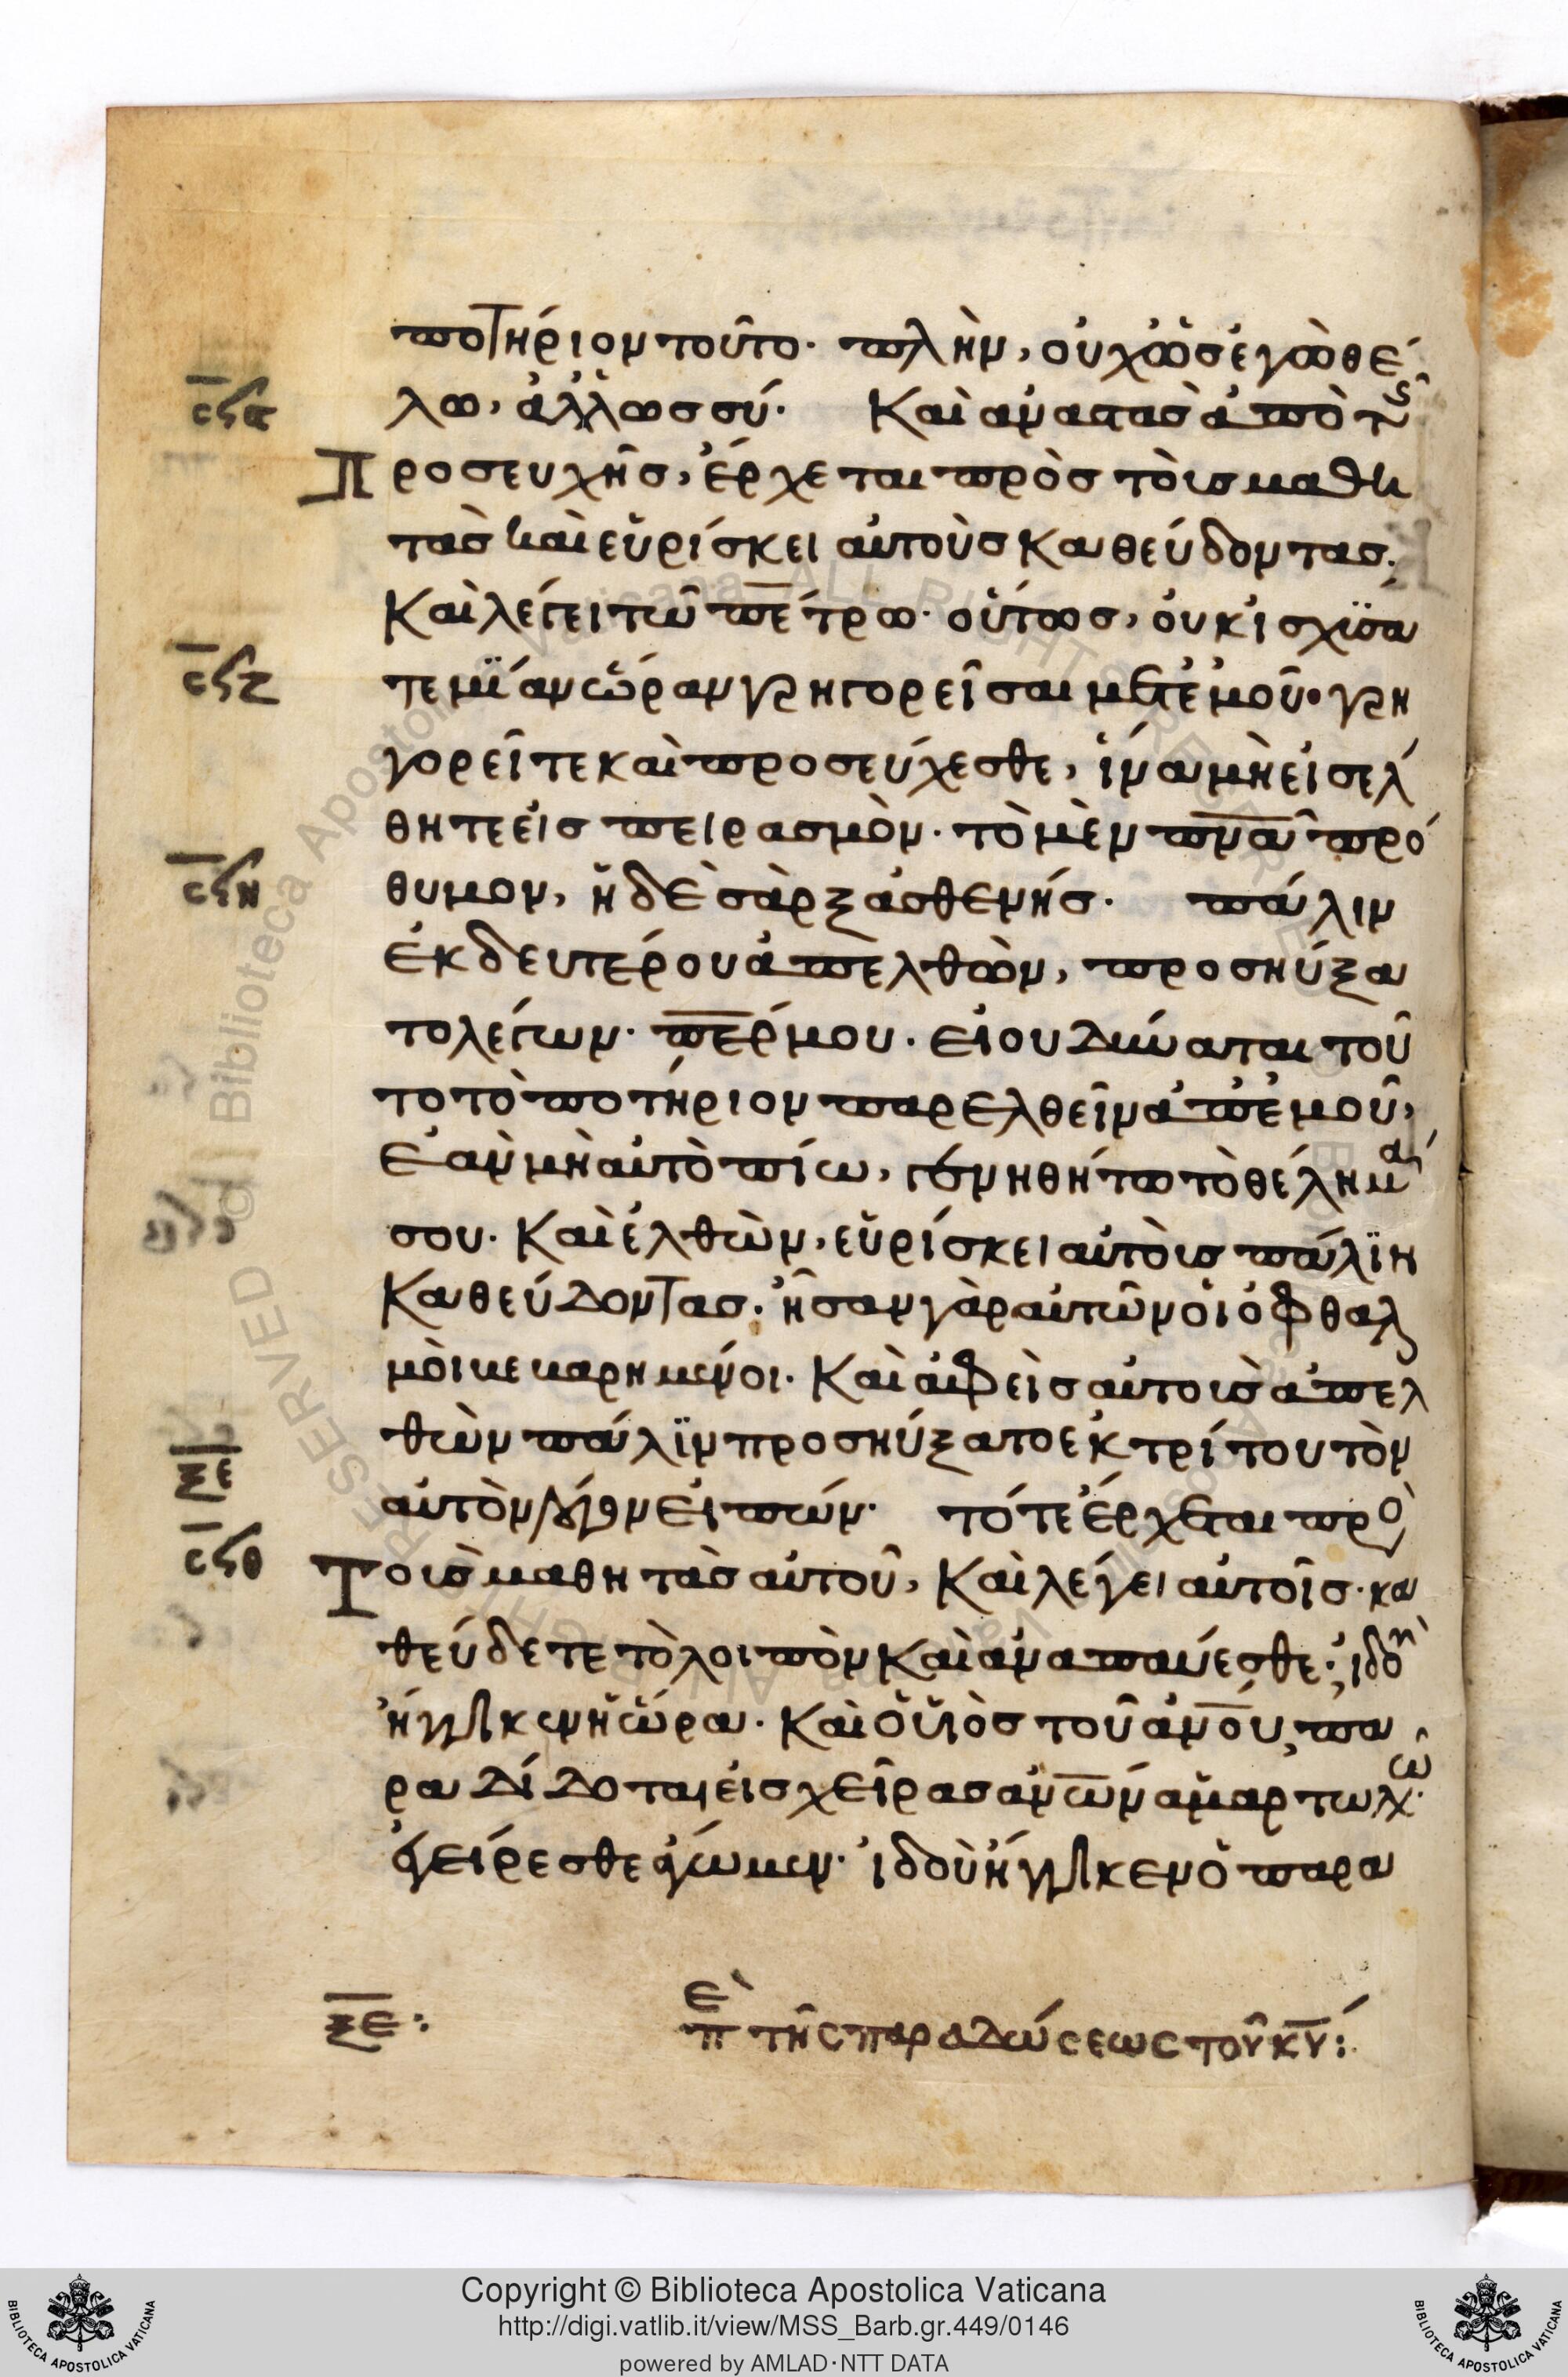 ποτήριον τοῦτο· πλὴν, οὐχ ὡσ ἐγὼ θέ
λω, ἀλλ ὡσ σύ· Καὶ ἀναστασ ἀπὸ τῆς
Προσευχῆσ, ἔρχεται πρὸσ τοὺσ μαθη
τὰσ καὶ εὑρίσκει αὐτοὺσ καθεύδοντασ·
Καὶ λέγει τῶ πέτρω· οὕτωσ, οὐκ ἰσχύσα
τε μΐαν ὥραν γρηγορεῖσαι μετ ἐμοῦ· γρη
γορεῖτε καὶ προσεύχεσθε, ἵνα μὴ εἰσέλ
θητε εἰσ πειρασμὸν· τὸ μὲν πνᾶ πρό
θυμον, ἡ δὲ σὰρξ ἀσθενήσ· πάλιν
ἐκ δευτέρου ἀπελθὼν, προσηύξα
το λέγων· περ μου· εἰ ου δύναται τοῦ
το τὸ ποτήριον παρελθεῖν ἀπ ἐμοῦ,
ἐαν μὴ αὐτὸ πίω, γενηθήτω τὸ θέλημά
σου· Καὶ ἐλθὼν, εὑρίσκει αὐτοὺσ πάλϊν
Καθεύδοντασ· ἦσαν γὰρ αὐτῶν οἱ ὀφθαλ
μοὶ κεκαρημένοι· Καὶ ἀφεὶσ αὐτοὺσ ἀπελ
θὼν πάλϊν προσηύξατο ἐκ τρίτου τὸν
αὐτὸν λόγον εἰπών· τότε ἔρχεται πρὸ
Τοὺσ μαθητὰσ αὐτοῦ, Καὶ λέγει αὐτοῖσ· κα
θεύδετε τὸ λοιπὸν Καὶ ἀναπαύεσθε· ἰδοὺ
ἤγγικεν ἡ ὥρα· Καὶ ὁ ὑιὸσ τοῦ ἀνου, πα
ραδίδοται εἰσ χεῖρασ ανων ἁμαρτωλῶ·
ἐγείρεσθε ἄγωμεν· ἰδοὺ ἤγγικεν ὁ παρα
ξε: Ἐπὶ τῆς παραδώσεως τοῦ κυ:
ϲϟϛ
ϲϟζ
ϲϟη
ξε
ϲϟθ
Copyright © Biblioteca Apostolica Vaticana
http://digi.vatlib.it/view/MSS_Barb.gr.449/0146
powered by AMLAD·NTT DATA
BIBLIOTECA APOSTOLICA VATICANA
BIBLIOTECA APOSTOLICA VATICANA